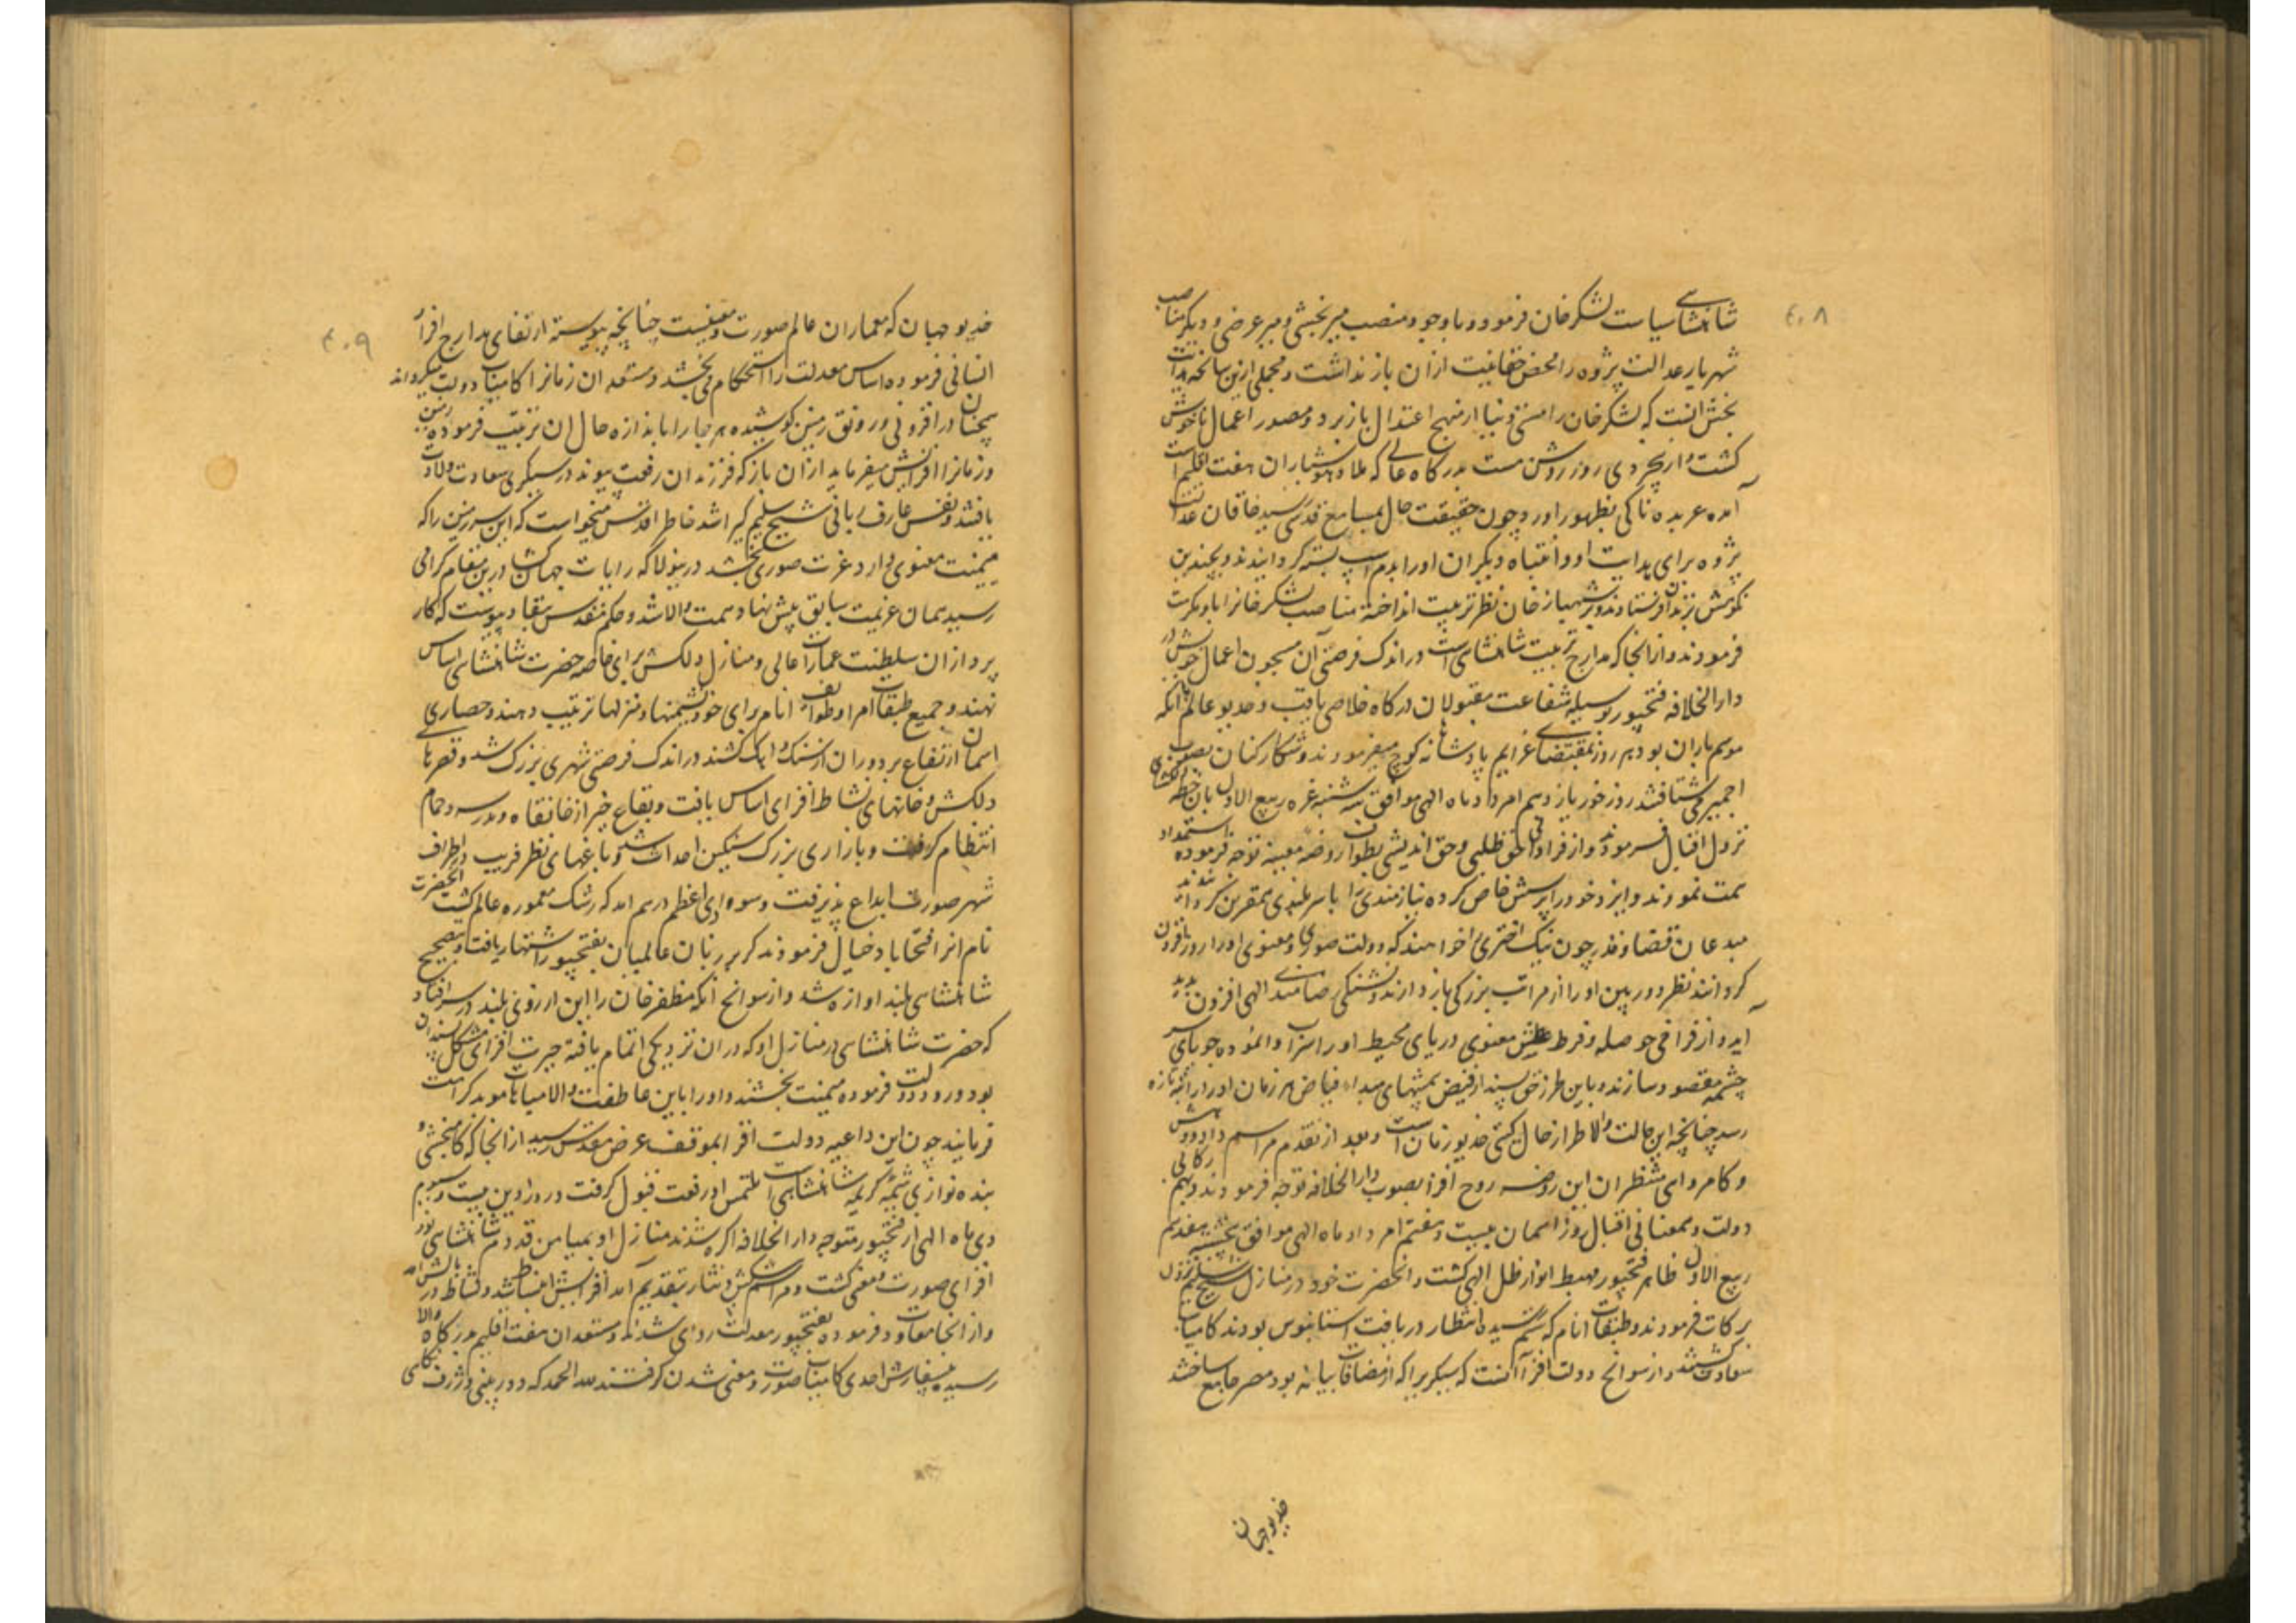 ۴۰۸
شاهنشاهی سیاست لشکرخان فرمود و با وجود منصب میر بخشی و میر عرضی و دیگر مناصب
شهریار عدالت پژوه را محض حقانیت ازان باز نداشت و مجملی ازین سانحه هدایت
بخش انست که لشکرخان را مستی دنیا از منهج اعتدال باز برد و مصور اعمال ناخوش
کشت و از بیخردی روز روشن مست بدرکاه عالی که ملاذ هوشیاران هفت اقلیم است
آمده عربده ناکی بظهور اورد چون حقیقت حال بمسامع قدسی رسید خاقان عدالت
پژوه برای هدایت او و اعتباه دیکران او را بدم اسپ بسته کردانیدند و بچندین
نکوهش بزندان فرستادند و بر شهباز خان نظر تربیت انداخته مناصب لشکر خانرا باو مکرمت
فرمودند و از انجا که مدارج تربیت شاهنشاهی است در اندک فرصتی آن مسجون اعمال خویش در
دارالخلافه فتحپور بوسیله شفاعت مقبولان درکاه خلاصی یافت و خدیو عالم با انکه
موسم باران بود هر روز بمقتضای عزایم پادشاهانه کوچ میفرمودند و شکار کنان بصوب
اجمیر می شتافتند روز خور یازدهم امرداد ماه الهی موافق سه شنبه غره ربیع الاول بان خطه دلکشای
نزول اقبال فرمودند و از فراوانی حق طلبی و حق اندیشی بطواف روضه معینیه توجه فرموده استمداد
همت نمودند و ایزد خود را پرستش خاص کرده نیازمندی را با سربلندی همقرین کردانیدند
مبدعان قضا و قدر چون نیک اختری را خواهند که دولت صوری و معنوی او را روز افزون
کردانند نظر دوربین او را از مراتب بزرکی باز دارند و تشنکی رضامندی الهی افزون پدید
آید و از فراخی حوصله و فرط عطش معنوی دریای محیط او را سراب وا نموده جویای سر
چشمه مقصود سازند و باین طرز حق پسند از فیض بخشیهای مبداء فیاض هر زمان او را رتبه تازه
رسد چنانچه این حالت والا طراز حال کیتی خدیو زمان است و بعد از تقدم مراسم داد و دهش
و کامروای منتظران این روضه روح افزا بصوب دارالخلافه توجه فرمودند و بهم رکابی
دولت و همعنانی اقبال روز اسمان بیست و هفتم امرداد ماه الهی موافق پنجشنبه هفدهم
ربیع الاول ظاهر فتحپور مهبط انوار ظل الهی کشت و انحضرت خود در منازل شیخ سلیم نزول
برکات فرمودند و طبقات انام که ستم رسیده انتظار دریافت استانبوس بودند کامیاب
سعادت کشتند و از سوانح دولت افزا آنست که سیکری را که از مضافات بیانه بود مصر جامع ساختند
خدیو جهان
۴۰۹
خدیو جهان که معماران عالم صورت و معنیست چنانچه پیوسته ارتقای مدارج افراد
انسانی فرموده اساس معدلت را استحکام می بخشد و مستعدان زمانرا کامیاب دولت میکرداند
همچنان در افزونی و رونق زمین کوشیده هر جا را باندازه حال ان تربیت فرموده زمین
و زمانرا افزایش میفرماید ازان باز که فرزندان رفعت پیوند در سیکری سعادت ولادت
یافتند و نفس عارف ربانی شیخ سلیم کیرا شد خاطر اقدس میخواست که این سرزمین را که
میمنت معنوی دارد عزت صوری بخشد درینولا که رایات جهانکشا درین مقام کرامی
رسید همان عزیمت سابق پیش نهاد همت والا شد و حکم مقدس بنفاذ پیوست که کار
پردازان سلطنت عمارات عالی و منازل دلکش برای خاصه حضرت شاهنشاهی اساس
نهند و جمیع طبقات امرا و طوایف انام برای خود نشیمنها و منزلها ترتیب دهند و حصاری
اسمان ارتفاع بر دوران از سنک و اهک کشند در اندک فرصتی شهری بزرک شد و قصرهای
دلکش و خانهای نشاط افزای اساس یافت و بقاع خیر از خانقاه و مدرسه و حمام
انتظام کرفت و بازاری بزرک سنکین احداث شد و باغهای نظر فریب در اطراف
شهر صورت ابداع پذیرفت و سواد اعظم فراهم امد که رشک معموره عالم کشت انحضرت
نام انرا فتحاباد خیال فرمودند که بر زبان عالمیان بفتحپور اشتهار یافت و بتصحیح
شاهنشاهی بلند اوازه شد و از سوانح انکه مظفرخان را این ارزوی بلند در سر افتاد
که حضرت شاهنشاهی در منازل او که دران نزدیکی اتمام یافته حیرت افزای مشکل پسندان
بود ورود دولت فرموده میمنت بخشند و او را باین عاطفت والا میاهات موید کرامت
فرمایند چون این داعیه دولت افزا بموقف عرض مقدس رسید از انجا که کامبخشی و
بنده نوازی شیمه کریمه شاهنشاهی است ملتمس او رفعت قبول کرفت و روز دین بیست و سیوم
دی ماه الهی از فتحپور متوجه دارالخلافه اکره شدند منازل او بمیامن قدوم شاهنشاهی نور
افزای صورت و معنی کشت و مراسم پیشکش و نثار بتقدیم آمد افزایش انبساط شد و نشاط در بالش امد
و از انجا معاودت فرموده بفتحپور معدلت روای شدند و مستعدان هفت اقلیم بدرکاه والا
رسیده بسفارش احدی کامیاب صورت و معنی شدن کرفتند لله الحمد که دوربینی و ژرف نکاهی